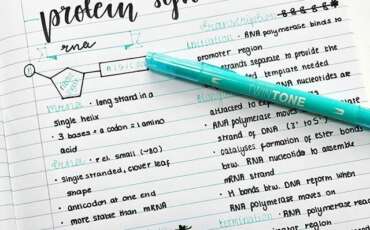 protein syn
rna
mRNA • long strand in a
single helix
• 3 bases = a codon = 1 amino
acid
• rel. small (~80)
single stranded, clover leaf
shape
• anticodon at one end
• more stable than mRNA
Transcription
Initiation • RNA polymerase binds to
promoter region
strands separate to provide the
template needed
RNA nucleotides are
attracted to
TWINTONE
• RNA polymerase moves
strand of DNA (3' to 5')
• catalyses formation of ester bonds
btw. RNA nucleotides to assemble
mRNA strand
• H bonds btw. DNA reform when
RNA polymerase moves on
Termination • RNA polymerase